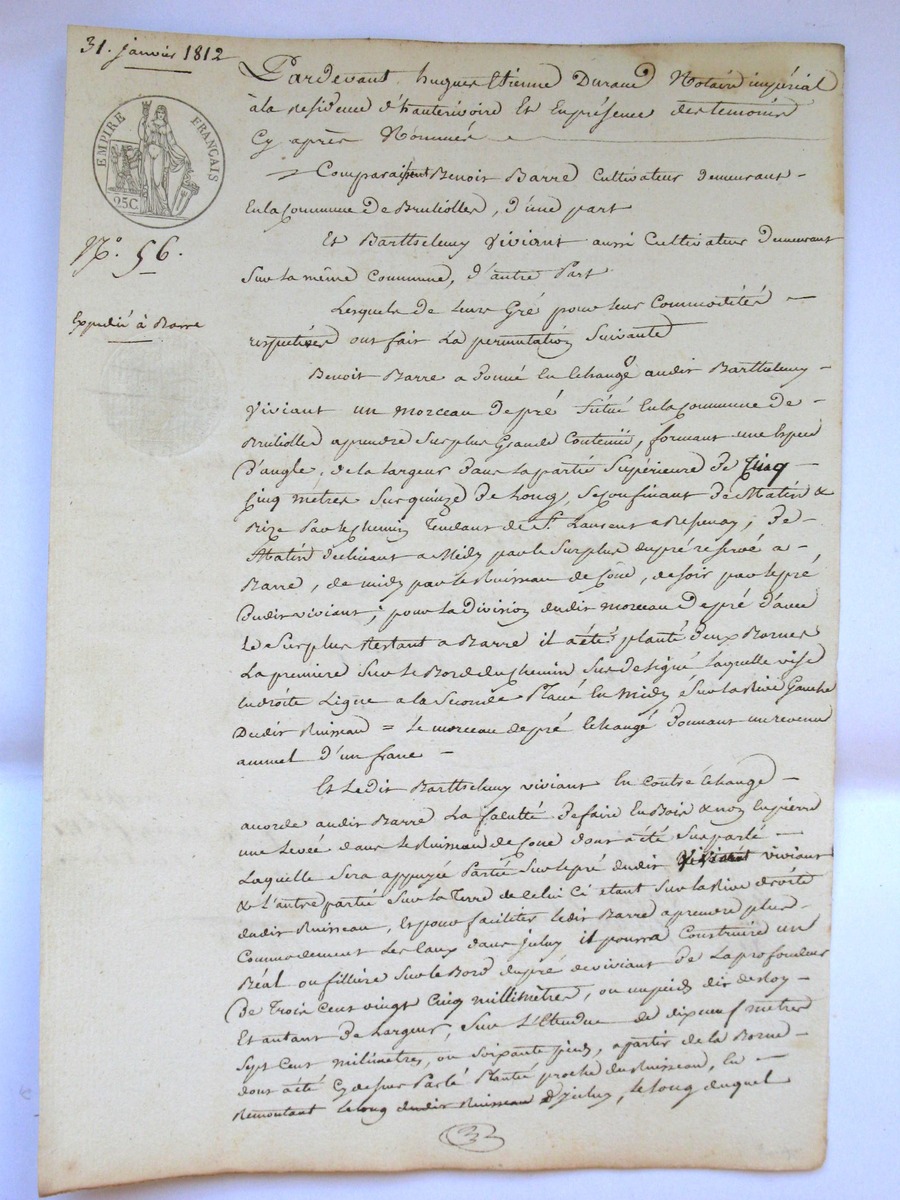 31. janvier 1812
EMPIRE FRANÇAIS
25C
N.º 56.
Expedié à Barre
Pardevant hugues Etienne Durand Notaire impérial
à la residence d'hauterivoire Et En présence des temoins
Cy après Nommés
Comparaissent Benoit Barre Cultivateur demeurant
En la Commune De Bruliolles, d'une part
Et Barthelemy Viviant aussi Cultivateur Demeurant
Sur la même Commune, d'autre Part
Lesquels de leurs Gré pour leur Commodités
respectives ont fait La permutation Suivante
Benoit Barre a donné En Echange audit Barthelemy
Viviant un morceau de pré Situé En la Commune De
Bruliolles a prendre Sur plus Grande Contenüe, formant une Espece
D'angle, de la largeur dans la partie Supérieure de Cinq
Cinq métres Sur quinze de Long, Se Confinant de Matin &
Bize Par le Chemin Tendant de St. Laurent a ; De
Matin declinant a Midy par le Surplus du pré reservé a
Barre, de midy par le Ruisseau de , de soir par le pré
Dudit viviant; pour la Division dudit morceau De pré D'avec
Le Surplus Restant a Barre il a été planté deux Bornes
La premiere Sur le Bord du Chemin Sus designé Laquelle vise
En droite Ligne a la Seconde Placé En Midy & Sur la Rive Gauche
Dudit Ruisseau = Le morceau de pré Echangé Donnant un revenu
annuel d'un franc
Et Ledit Barthelemy viviant En Contre Echange
accorde audit Barre La faculté De faire En Bois & non En pierre
une Levée dans le Ruisseau de dont a été Sus parlé
Laquelle Sera appuyée Partie Sur le pré dudit viviant
& L'autre partie Sur la Terre de Celui Ci etant Sur la Rive droite
dudit Ruisseau, Et pour faciliter ledit Barre a prendre plus
Commodement Les Eaux dans jceluy il pourra Construire un
Béal ou filliére Sur le Bord du pré de viviant de La profondeur
De Trois Cent vingt Cinq millimètres, ou un pied dit de Roy
Et autant De Largeur, Sur L'Etendue de dixneuf metres
Sept Cent milimetres, ou Soixante pieds, a partir de la Borne
dont a été Cy dessus Parlé Planté proche du Ruisseau, En
Remontant le long dudit Ruisseau d'jceluy, le long duquel